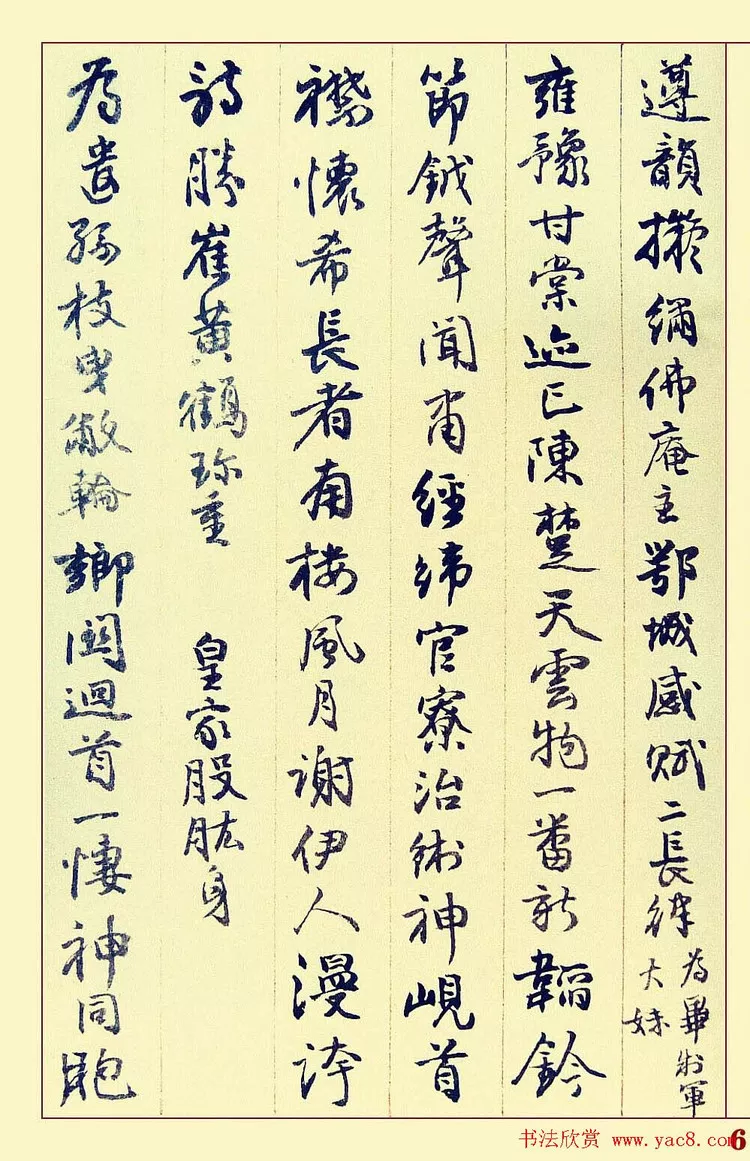 遵韻擬繡佛庵主鄂城感賦二長律
為畢制軍
大妹
雍豫甘棠迹已陳楚天雲物一番新韜鈐
節鉞聲聞甫經緯官寮治術神峴首
襟懷希長者南樓風月謝伊人漫誇
詩勝崔黃鶴珍重 皇家股肱身
為遣孫枝曳輪鄉關迴首一悽神同胞
书法欣赏 www.yac8.com
6